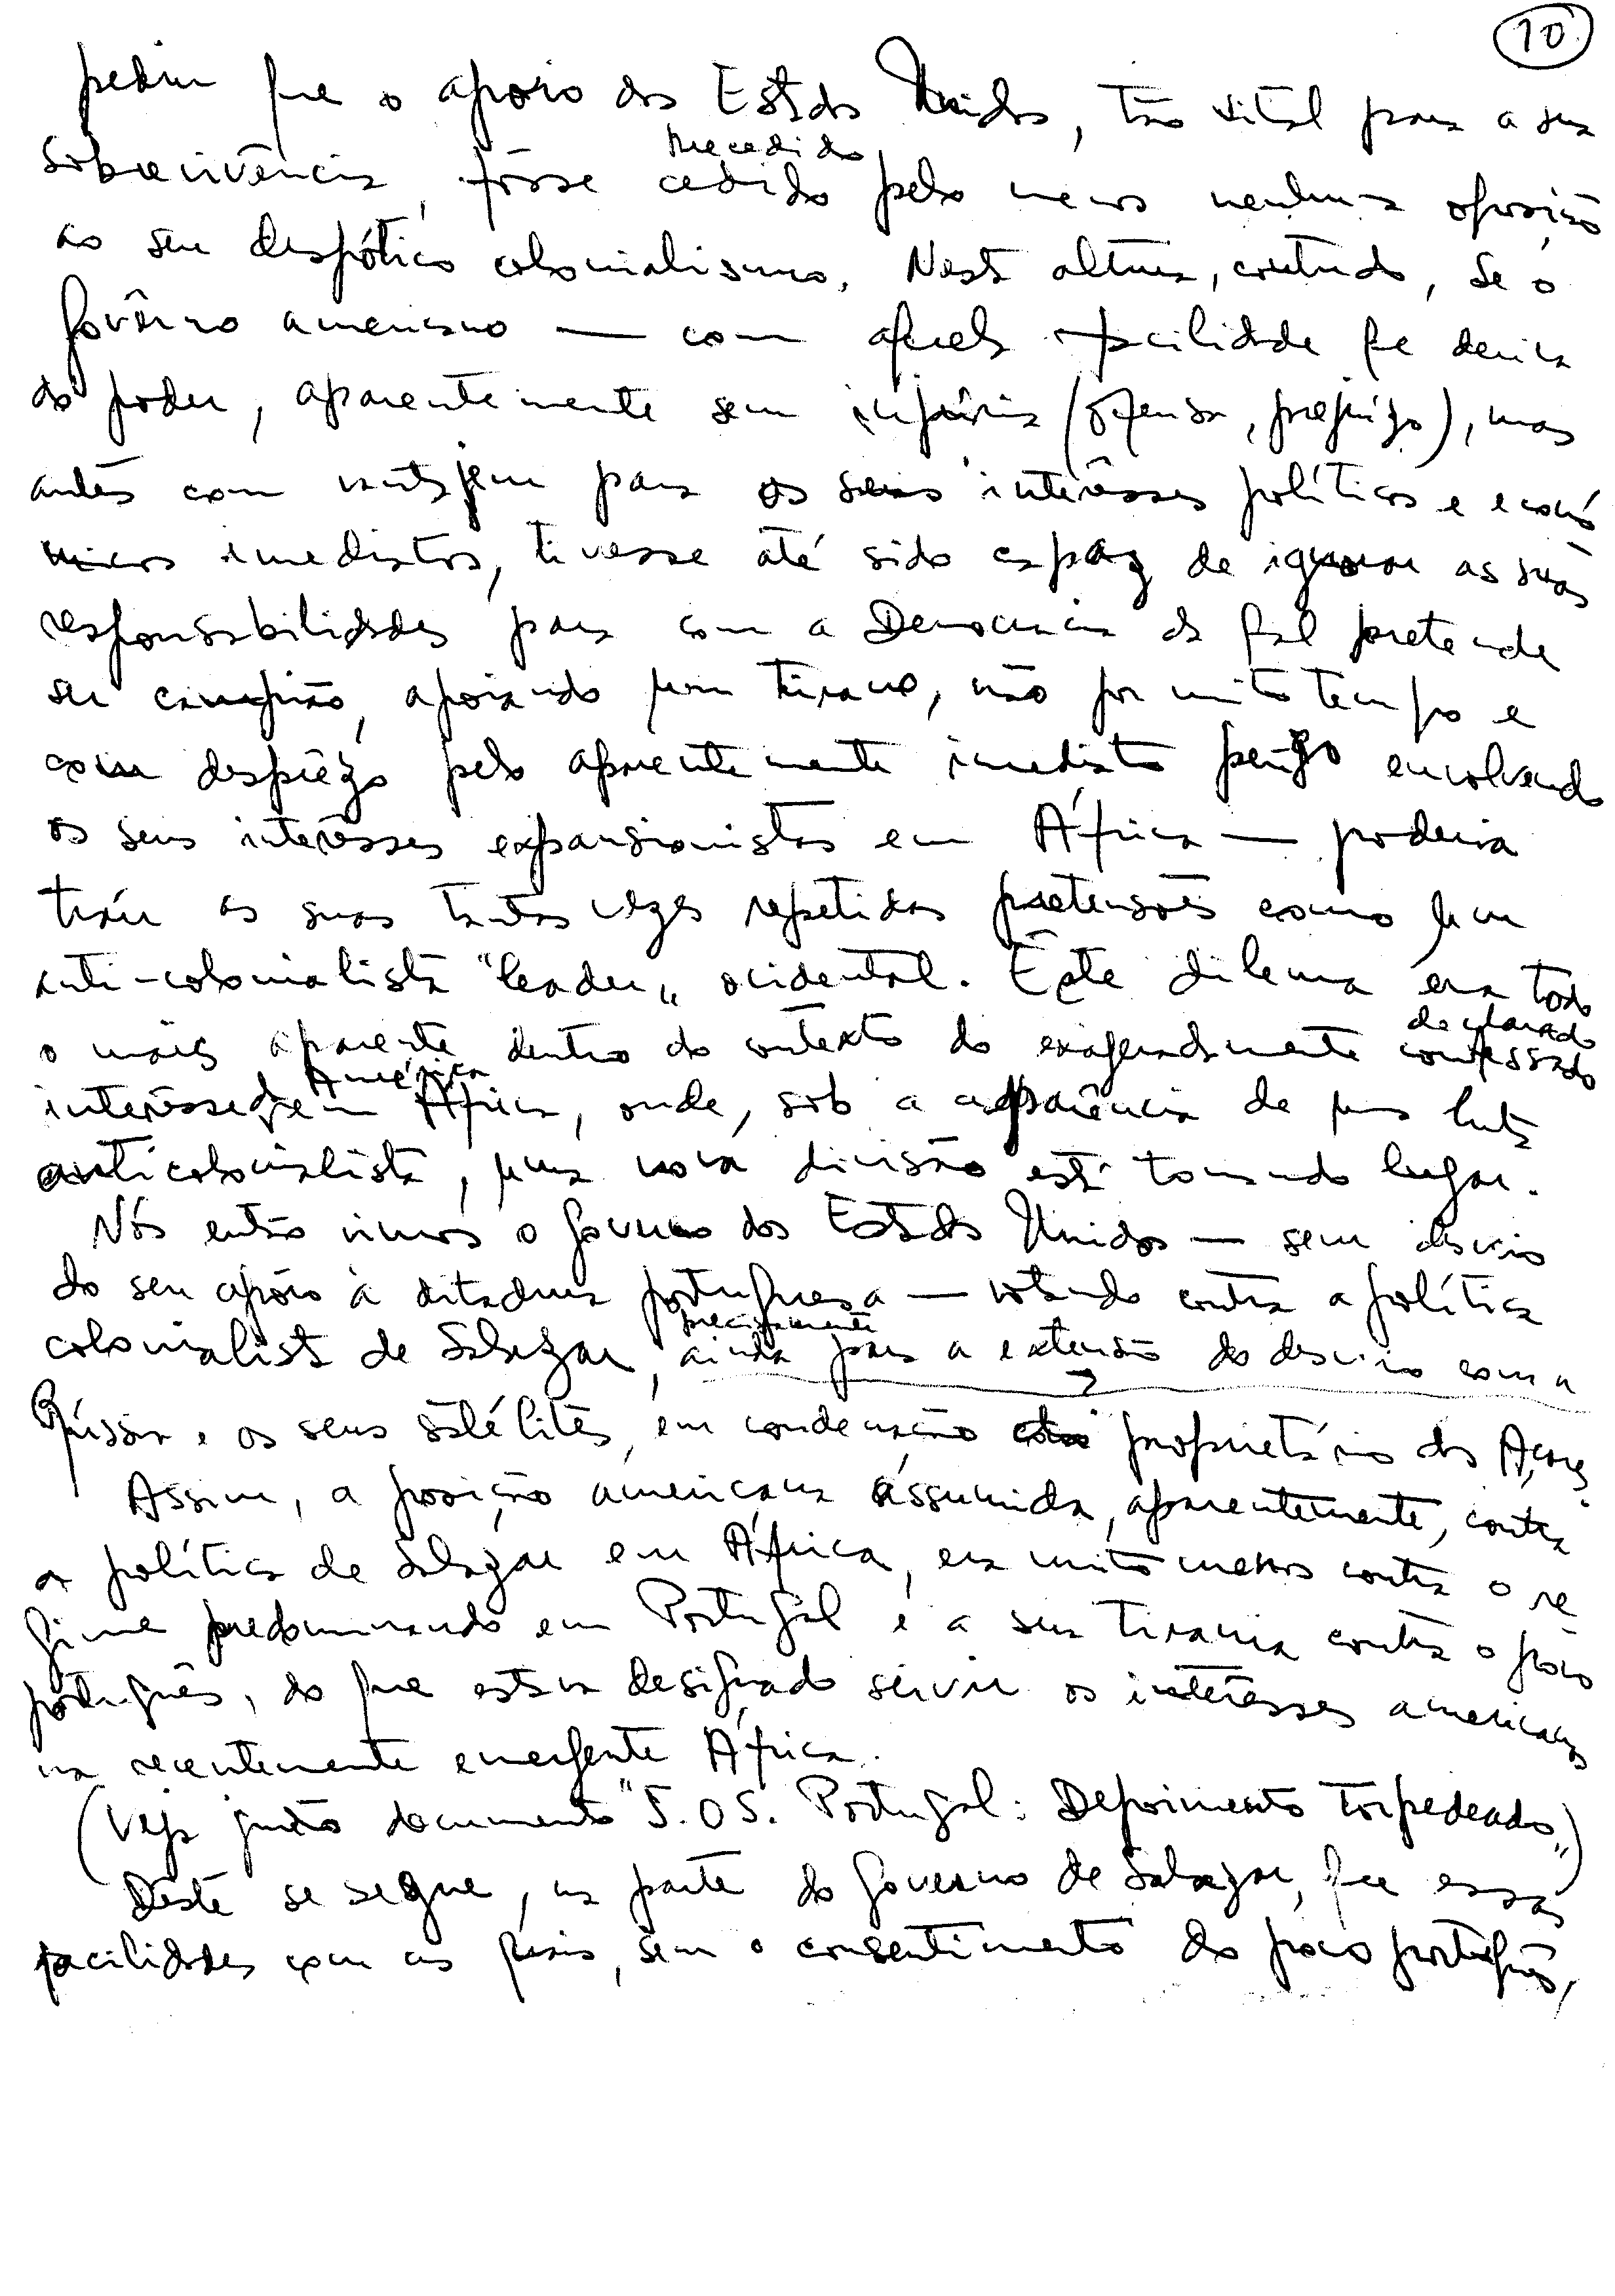 10
pedir que o apoio dos Estados Unidos, tão vital para a sua
sobrevivência, fôsse cedido pelo menos nenhuma oposição
ao seu despótico colonialismo. Nesta altura, contudo, se o
govêrno americano — com aquela facilidade que deriva
do poder, aparentemente sem injúria (ofensa, prejuízo), mas
antes com vantajem para os seus interêsses políticos e econó
micos imediatos, tivesse até sido capaz de ignorar as suas
responsabilidades para com a Democracia da qual pretende
ser campião, apoiando um tirano, não por muito tempo e
com desprêzo pelo aparentemente imediato perigo envolvendo
os seus interêsses expansionistas em África — poderia
trair as suas tantas vezes repetidas pretensões como um
anti-colonialista "leader" ocidental. Êste dilema era todo
declarado
o mais aparente dentro do contexto do exageradamente confessado
América
interêsse em África, onde, sob a aparência de uma luta
anticolonialista, uma nova divisão está tomando lugar.
Nós então vimos o governo dos Estados Unidos — sem desvio
do seu apôio à ditadura portuguesa — votando contra a política
precisamente
colonialista de Salazar, ainda para a extensão do desvio com a
Rússia e os seus satélites, em condenação proprietário dos Açores.
Assim, a posição americana assumida, aparentemente, contra
a política de Salazar em África, era muito menos contra o re
gime predominando em Portugal e a sua tirania contra o povo
português, do que estava designado servir os interêsses americanos
na recentemente emergente África.
(Veja junto documento "S.O.S. Portugal: Depoimento Torpedeado")
Dêste se segue, na parte do governo de Salazar, que essas
facilidades com as quais, sem o consentimento do povo português,